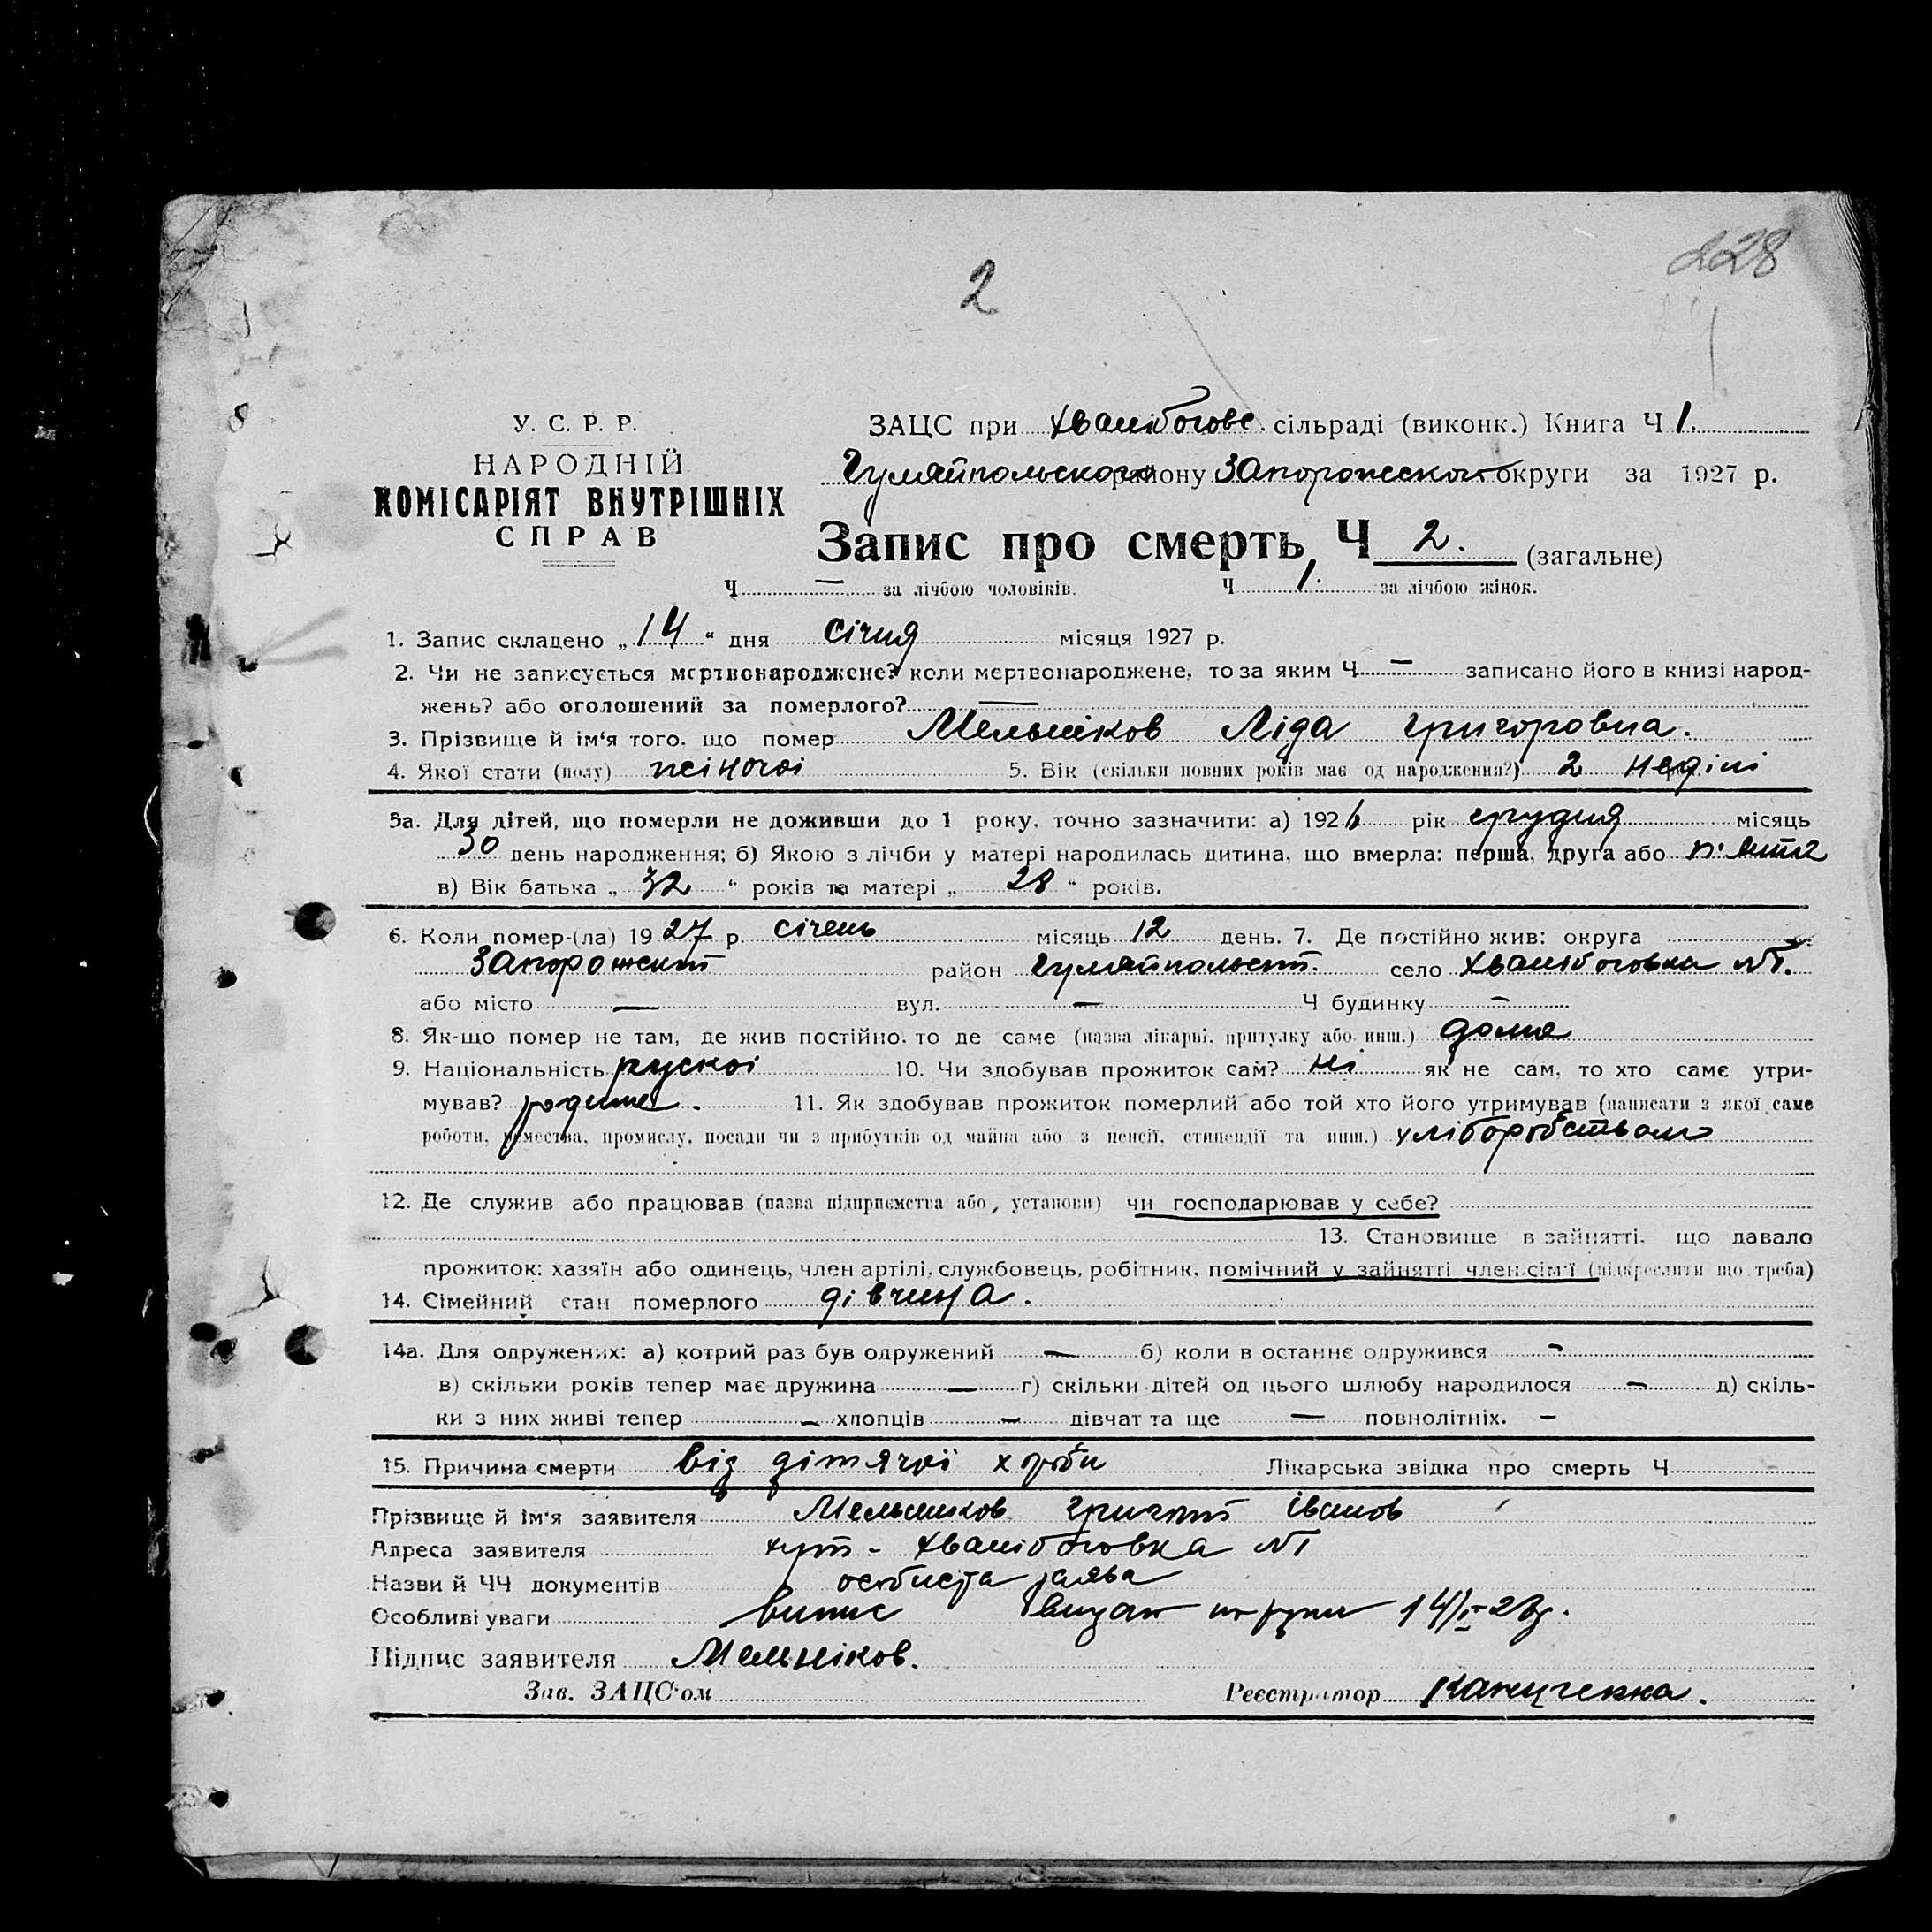 228
2
У. С. Р. Р.
НАРОДНІЙ
КОМІСАРІЯТ ВНУТРІШНІХ
СПРАВ
ЗАЦС при Хвалібогове. сільраді (виконк.) Книга Ч 1.
Гуляйпольского району Запорожского округи за 1927 р.
Запис про смерть Ч 2. (загальне)
Ч — за лічбою чоловіків. Ч 1. за лічбою жінок.
1. Запис складено „14“ дня січня місяця 1927 р.
2. Чи не записується мертвонароджене? коли мертвонароджене, то за яким Ч — записано його в книзі народ-
жень? або оголошений за померлого? —
3. Прізвище й ім'я того, що помер Мельніков Ліда Григоровна.
4. Якої стати (полу) жіночоі 5. Вік (скільки повних років має од народження?) 2 неділі
5а. Для дітей, що померли не доживши до 1 року, точно зазначити: а) 1926 рік грудня місяць
30 день народження; б) Якою з лічби у матері народилась дитина, що вмерла: перша, друга або п'ята
в) Вік батька „32“ років та матері „28“ років.
6. Коли помер-(ла) 1927 р. січень місяць 12 день. 7. Де постійно жив: округа
Запорожськ район Гуляйпольськ. село Хвалібоговка №1.
або місто — вул. — Ч будинку —
8. Як-що помер не там, де жив постійно, то де саме (назва лікарні, притулку або инш.) дома
9. Національність рускоі 10. Чи здобував прожиток сам? ні як не сам, то хто саме утри-
мував? родите. 11. Як здобував прожиток померлий або той хто його утримував (написати з якої саме
роботи, ремества, промислу, посади чи з прибутків од майна або з пенсії, стипендії та инш.) хліборобством
12. Де служив або працював (назва підприємства або, установи) чи господарював у себе?
13. Становище в зайнятті, що давало
прожиток: хазяїн або одинець, член артілі, службовець, робітник, помічний у зайнятті член сім'ї (підкреслити що треба)
14. Сімейний стан померлого дівчина.
14а. Для одружених: а) котрий раз був одружений — б) коли в останнє одружився -
в) скільки років тепер має дружина — г) скільки дітей од цього шлюбу народилося — д) скіль-
ки з них живі тепер — хлопців — дівчат та ще — повнолітніх. —
15. Причина смерти від дітячої хороби Лікарська звідка про смерть Ч
Прізвище й ім'я заявителя Мельников Григорій Іванов
Адреса заявителя хут. Хвалібоговка №1
Назви й ЧЧ документів особиста заява
Особливі уваги випис видан на руки 14/I-27р.
Підпис заявителя Мельніков.
Зав. ЗАЦС'ом Реєстратор